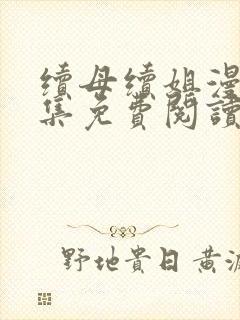 續母續姐漫
集免費閱讀
野地貴日黃